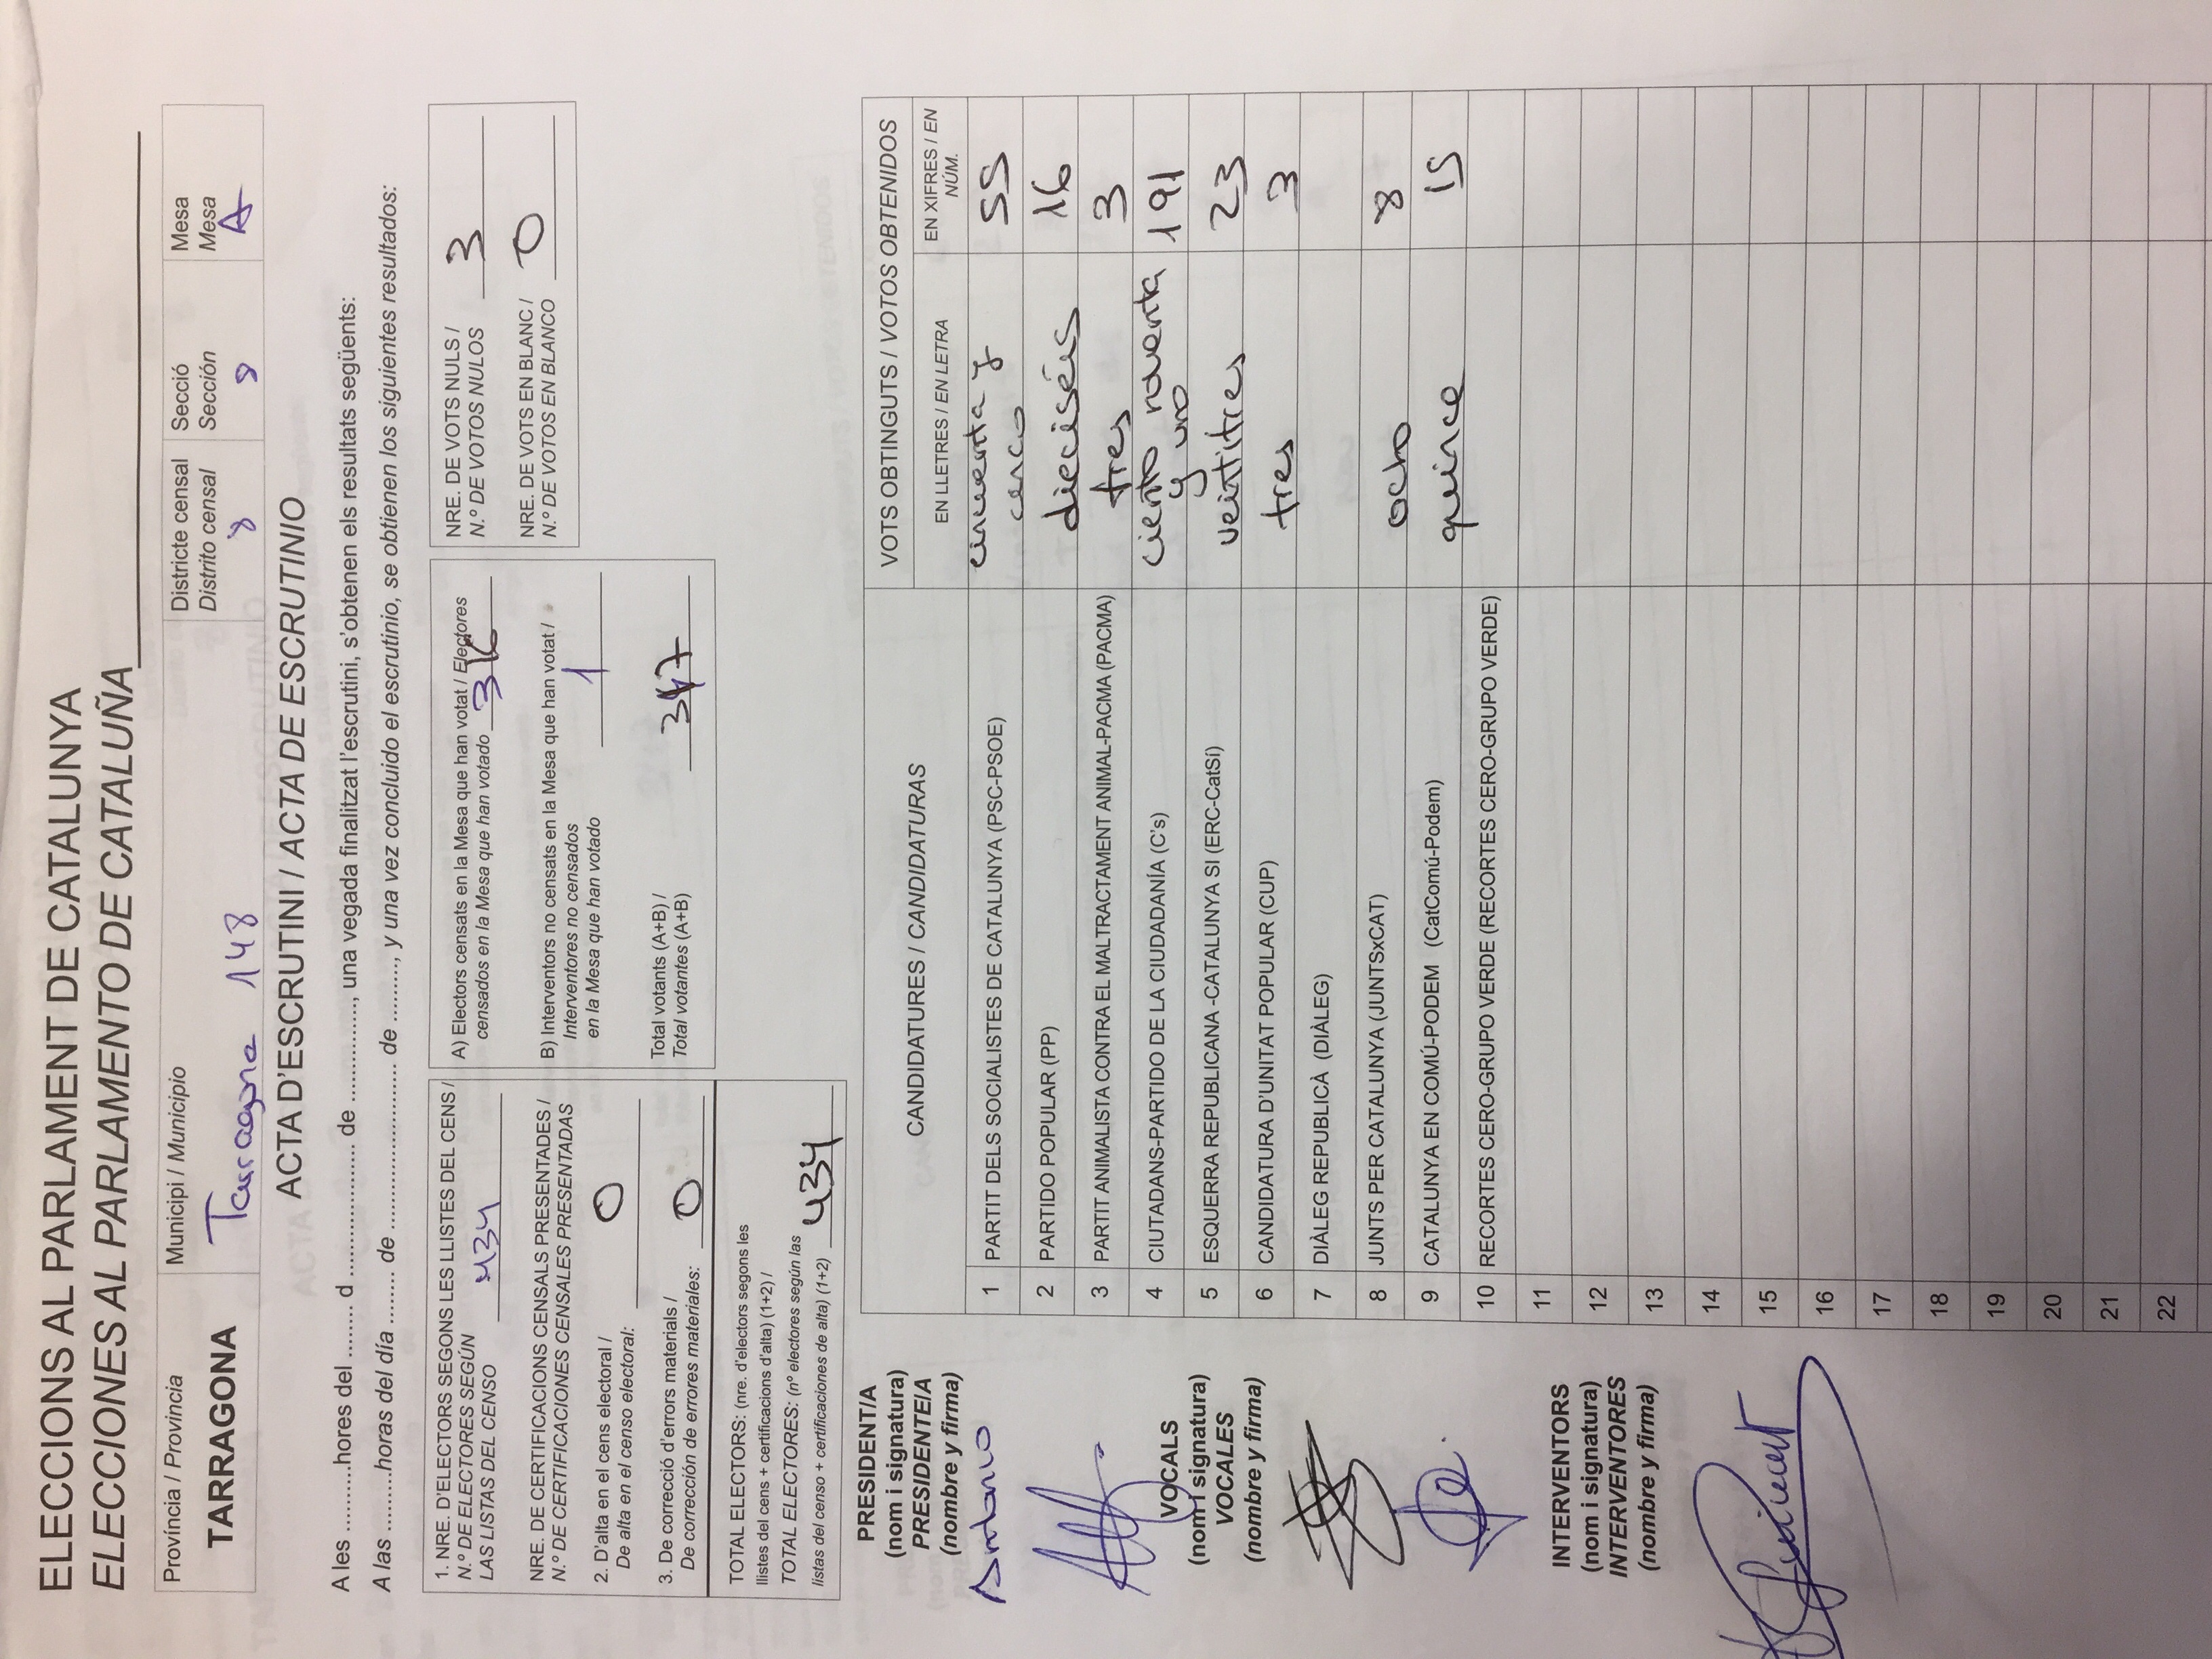 ELECCIONS AL PARLAMENT DE CATALUNYA
ELECCIONES AL PARLAMENTO DE CATALUÑA
Província / Provincia
TARRAGONA
Municipi / Municipio
Tarragona 148
Districte censal
Distrito censal
8
Secció
Sección
8
Mesa
Mesa
A
ACTA D'ESCRUTINI / ACTA DE ESCRUTINIO
A les ..........hores del ........ d .................... de ..............., una vegada finalitzat l'escrutini, s'obtenen els resultats següents:
A las .........horas del día ........ de ......................... de ........., y una vez concluido el escrutinio, se obtienen los siguientes resultados:
1. NRE. D'ELECTORS SEGONS LES LLISTES DEL CENS /
N.º DE ELECTORES SEGÚN
LAS LISTAS DEL CENSO 434
NRE. DE CERTIFICACIONS CENSALS PRESENTADES /
N.º DE CERTIFICACIONES CENSALES PRESENTADAS
2. D'alta en el cens electoral /
De alta en el censo electoral: 0
3. De correcció d'errors materials /
De corrección de errores materiales: 0
TOTAL ELECTORS: (nre. d'electors segons les
llistes del cens + certificacions d'alta) (1+2) /
TOTAL ELECTORES: (nº electores según las
listas del censo + certificaciones de alta) (1+2) 434
A) Electors censats en la Mesa que han votat / Electores
censados en la Mesa que han votado 316
B) Interventors no censats en la Mesa que han votat /
Interventores no censados
en la Mesa que han votado 1
Total votants (A+B) /
Total votantes (A+B) 317
NRE. DE VOTS NULS /
N.º DE VOTOS NULOS 3
NRE. DE VOTS EN BLANC /
N.º DE VOTOS EN BLANCO 0
PRESIDENT/A
(nom i signatura)
PRESIDENTE/A
(nombre y firma)
Antonio
VOCALS
(nom i signatura)
VOCALES
(nombre y firma)
INTERVENTORS
(nom i signatura)
INTERVENTORES
(nombre y firma)
CANDIDATURES / CANDIDATURAS
VOTS OBTINGUTS / VOTOS OBTENIDOS
EN LLETRES / EN LETRA
EN XIFRES / EN
NÚM.
1 PARTIT DELS SOCIALISTES DE CATALUNYA (PSC-PSOE) cincuenta y cinco 55
2 PARTIDO POPULAR (PP) dieciséis 16
3 PARTIT ANIMALISTA CONTRA EL MALTRACTAMENT ANIMAL-PACMA (PACMA) tres 3
4 CIUTADANS-PARTIDO DE LA CIUDADANÍA (C's) ciento noventa y uno 191
5 ESQUERRA REPUBLICANA -CATALUNYA SI (ERC-CatSí) veintitres 23
6 CANDIDATURA D'UNITAT POPULAR (CUP) tres 3
7 DIÀLEG REPUBLICÀ (DIÀLEG)
8 JUNTS PER CATALUNYA (JUNTSxCAT) ocho 8
9 CATALUNYA EN COMÚ-PODEM (CatComú-Podem) quince 15
10 RECORTES CERO-GRUPO VERDE (RECORTES CERO-GRUPO VERDE)
11
12
13
14
15
16
17
18
19
20
21
22